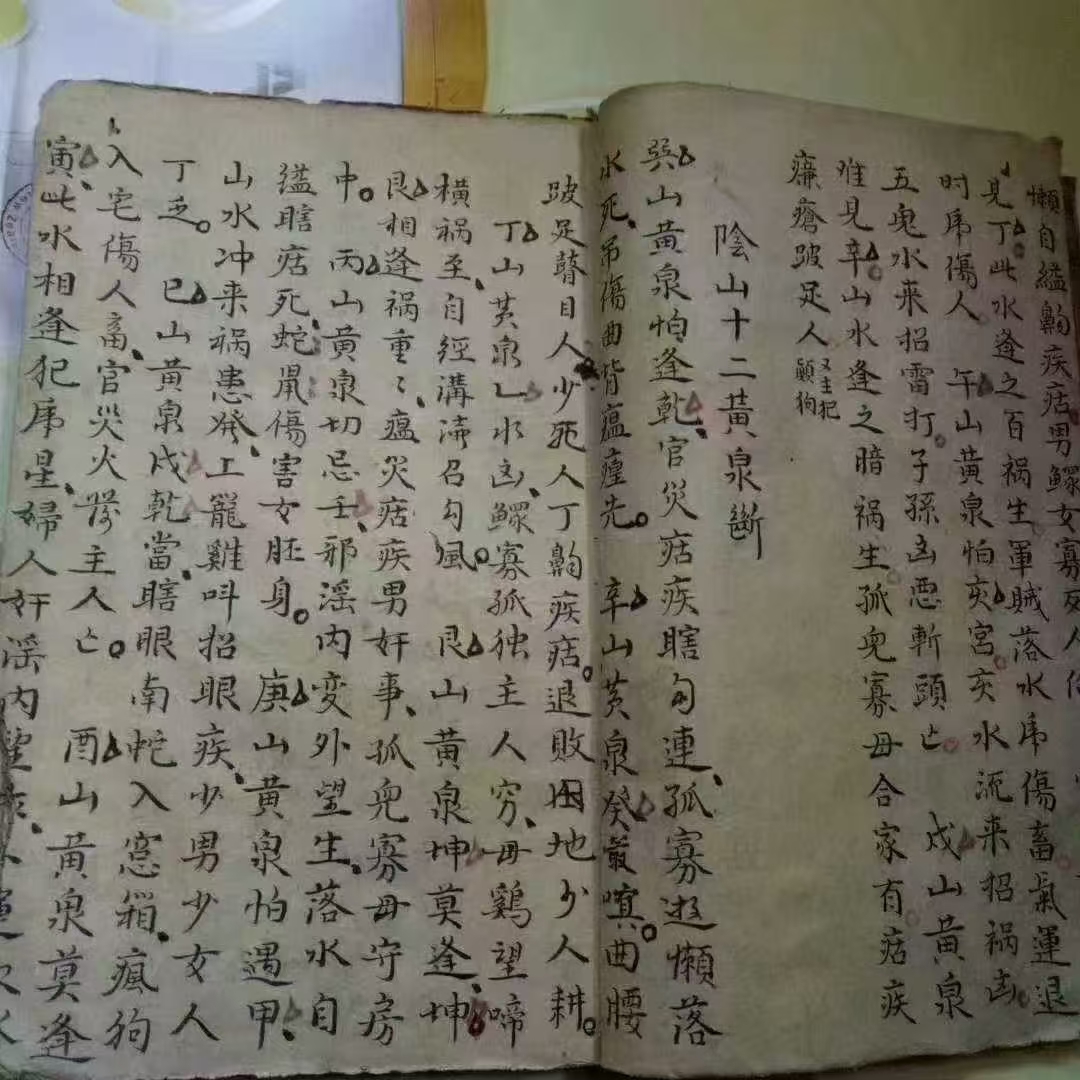 懶自縊鷨疾痁男鰥女寡死人
見丁此水逢之百祸生軍賊落水乕傷畜氣運退
时乕傷人 午山黃泉怕亥宮亥水流来招祸凶
五鬼水来招雷打子孫凶悪斬頭亡 戌山黃泉
难見辛山水逢之暗祸生孤児寡母合家有痁疾
㾾瘡跛足人又主犯顛狗
陰山十二黃泉斷
巽山黃泉怕逢乾官災痁疾瞎勾連孤寡逰懶落
水死吊傷曲背瘟㾮先 辛山黃泉癸最嗔曲腰
跛足瞽目人少死人丁鷨疾痁退敗田地少人耕
丁山黃泉乙水凶鰥寡孤独主人穷母鷄望啼
横祸至自經溝涛召勾風 艮山黃泉坤莫逢坤
艮相逢祸重〻瘟災痁疾男奸事孤児寡母守房
中 丙山黃泉切忌壬邪滛内变外望生落水自
缢瞎痁死蛇鼡傷害女胚身 庚山黃泉怕遇甲
山水冲来祸患発上籠雞呌招眼疾少男少女人
丁乏 巳山黃泉戌乾當瞎眼南蛇入窓箱瘋狗
入宅傷人畜官災火發主人亡 酉山黃泉莫逢
寅此水相逢犯乕星婦人奸滛内望